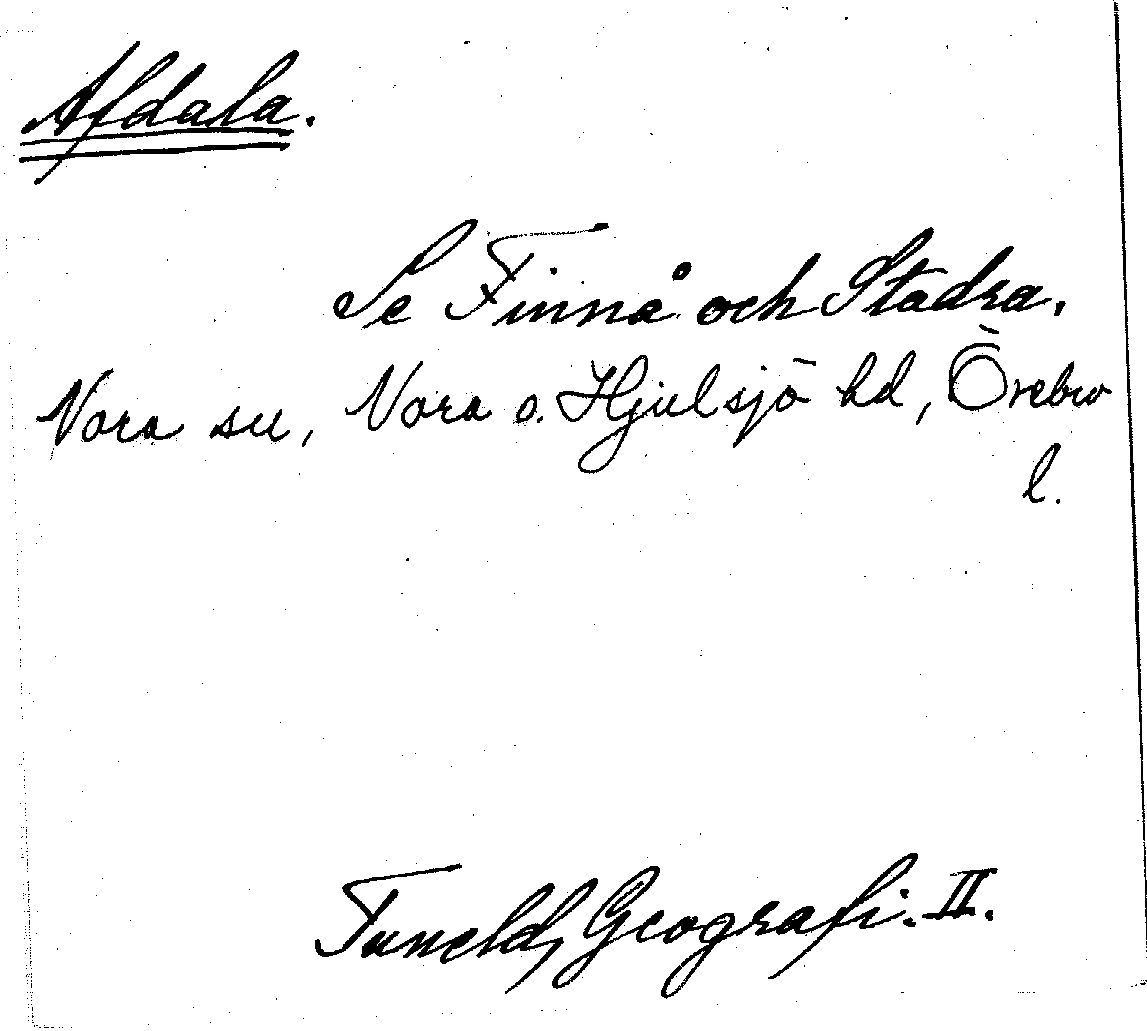 Afdala.
Se Finnå och Stadra.
Nora su, Nora o. Hjulsjö hd, Örebro
l.
Tuneld, Geografi. II.